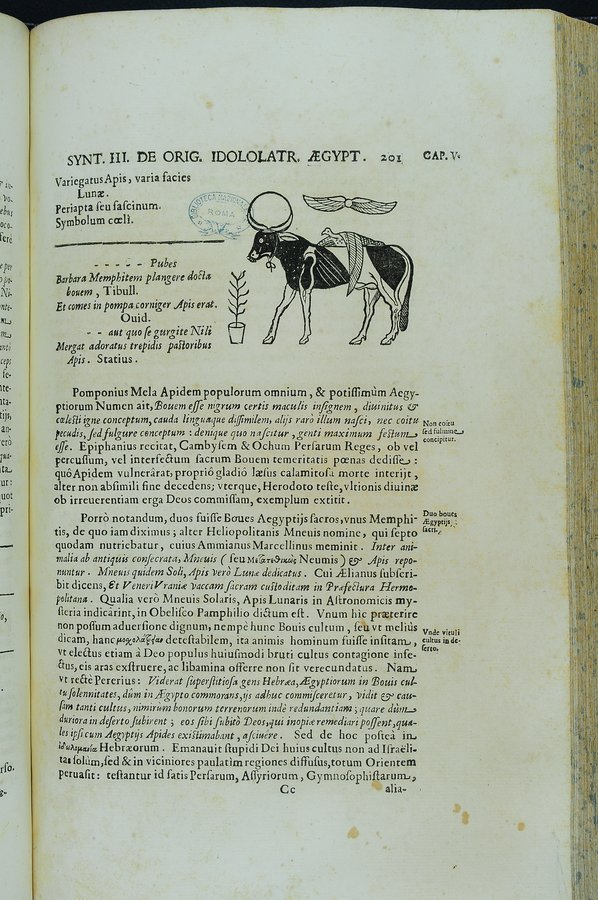 SYNT. III. DE ORIG. IDOLOLATR. ÆGYPT. 201 CAP. V.
Variegatus Apis, varia facies
Lunæ.
Periapta ſeu faſcinum.
Symbolum cœli.
BIBLIOTECA NAZIONALE
ROMA
- - - - - Pubes
Barbara Memphitem plangere docta
bouem, Tibull.
Et comes in pompa corniger Apis erat.
Ouid.
- - aut quo ſe gurgite Nili
Mergat adoratus trepidis paſtoribus
Apis. Statius.
Pomponius Mela Apidem populorum omnium, & potiſſimùm Aegy-
ptiorum Numen ait, Bouem eſſe nigrum certis maculis inſignem, diuinitus &
cœleſti igne conceptum, cauda linguaque diſſimilem, alijs rarò illum naſci, nec coitu
pecudis, ſed fulgure conceptum : denique quo naſcitur, genti maximum feſtum
eſſe. Epiphanius recitat, Cambyſen & Ochum Perſarum Reges, ob vel
percuſſum, vel interfectum ſacrum Bouem temeritatis pœnas dediſſe :
quò Apidem vulnerârat, proprió gladió læſus calamitoſâ morte interijt,
alter non abſimili fine decedens; vterque, Herodoto teſte, vltionis diuinæ
ob irreuerentiam erga Deos commiſſam, exemplum extitit.
Non coitu
ſed fulmine
concipitur.
Porrò notandum, duos fuiſſe Boues Aegyptijs ſacros, vnus Memphi-
tis, de quo iam diximus ; alter Heliopolitanis Mneuis nomine, qui ſepto
quodam nutriebatur, cuius Ammianus Marcellinus meminit. Inter ani-
malia ab antiquis conſecrata, Mneuis ( ſeu Neumis ) & Apis repo-
nuntur. Mneuis quidem Soli, Apis verò Lunæ dedicatus. Cui Ælianus ſubſcri-
bit dicens, Et Veneri Vraniæ vaccam ſacram cuſtoditam in Præfectura Hermo-
politana. Qualia verò Mneuis Solaris, Apis Lunaris in Aſtronomicis my-
ſteria indicârint, in Obeliſco Pamphilio dictum eſt. Vnum hîc præterire
non poſſum aduerſione dignum, nempè hunc Bouis cultum, ſeu vt meliùs
dicam, hanc deteſtabilem, ita animis hominum fuiſſe inſitam,
vt electus etiam à Deo populus huiuſmodi bruti cultus contagione infe-
ctus, eis aras exſtruere, ac libamina offerre non ſit verecundatus. Nam
vt rectè Pererius : Viderat ſuperſtitioſa gens Hebræa, Ægyptiorum in Bouis cul-
tu ſolennitates, dùm in Ægypto commorans, ijs adhuc commiſceretur, vidit & cau-
ſam tanti cultus, nimirum bonorum terrenorum indè redundantiam; quare dùm
duriora in deſerto ſubirent ; eos ſibi ſubitò Deos, qui inopiæ remediari poſſent, qua-
les ipſi cum Aegyptijs Apides exiſtimabant, aſciuere. Sed de hoc poſteà in
Hebræorum. Emanauit ſtupidi Dei huius cultus non ad Iſraëli-
tas ſolùm, ſed & in viciniores paulatim regiones diffuſus, totum Orientem
peruaſit : teſtantur id ſatis Perſarum, Aſſyriorum, Gymnoſophiſtarum,
Duo boues
Ægyptijs
ſacri.
Vnde vituli
cultus in de-
ſerto.
Cc alia-